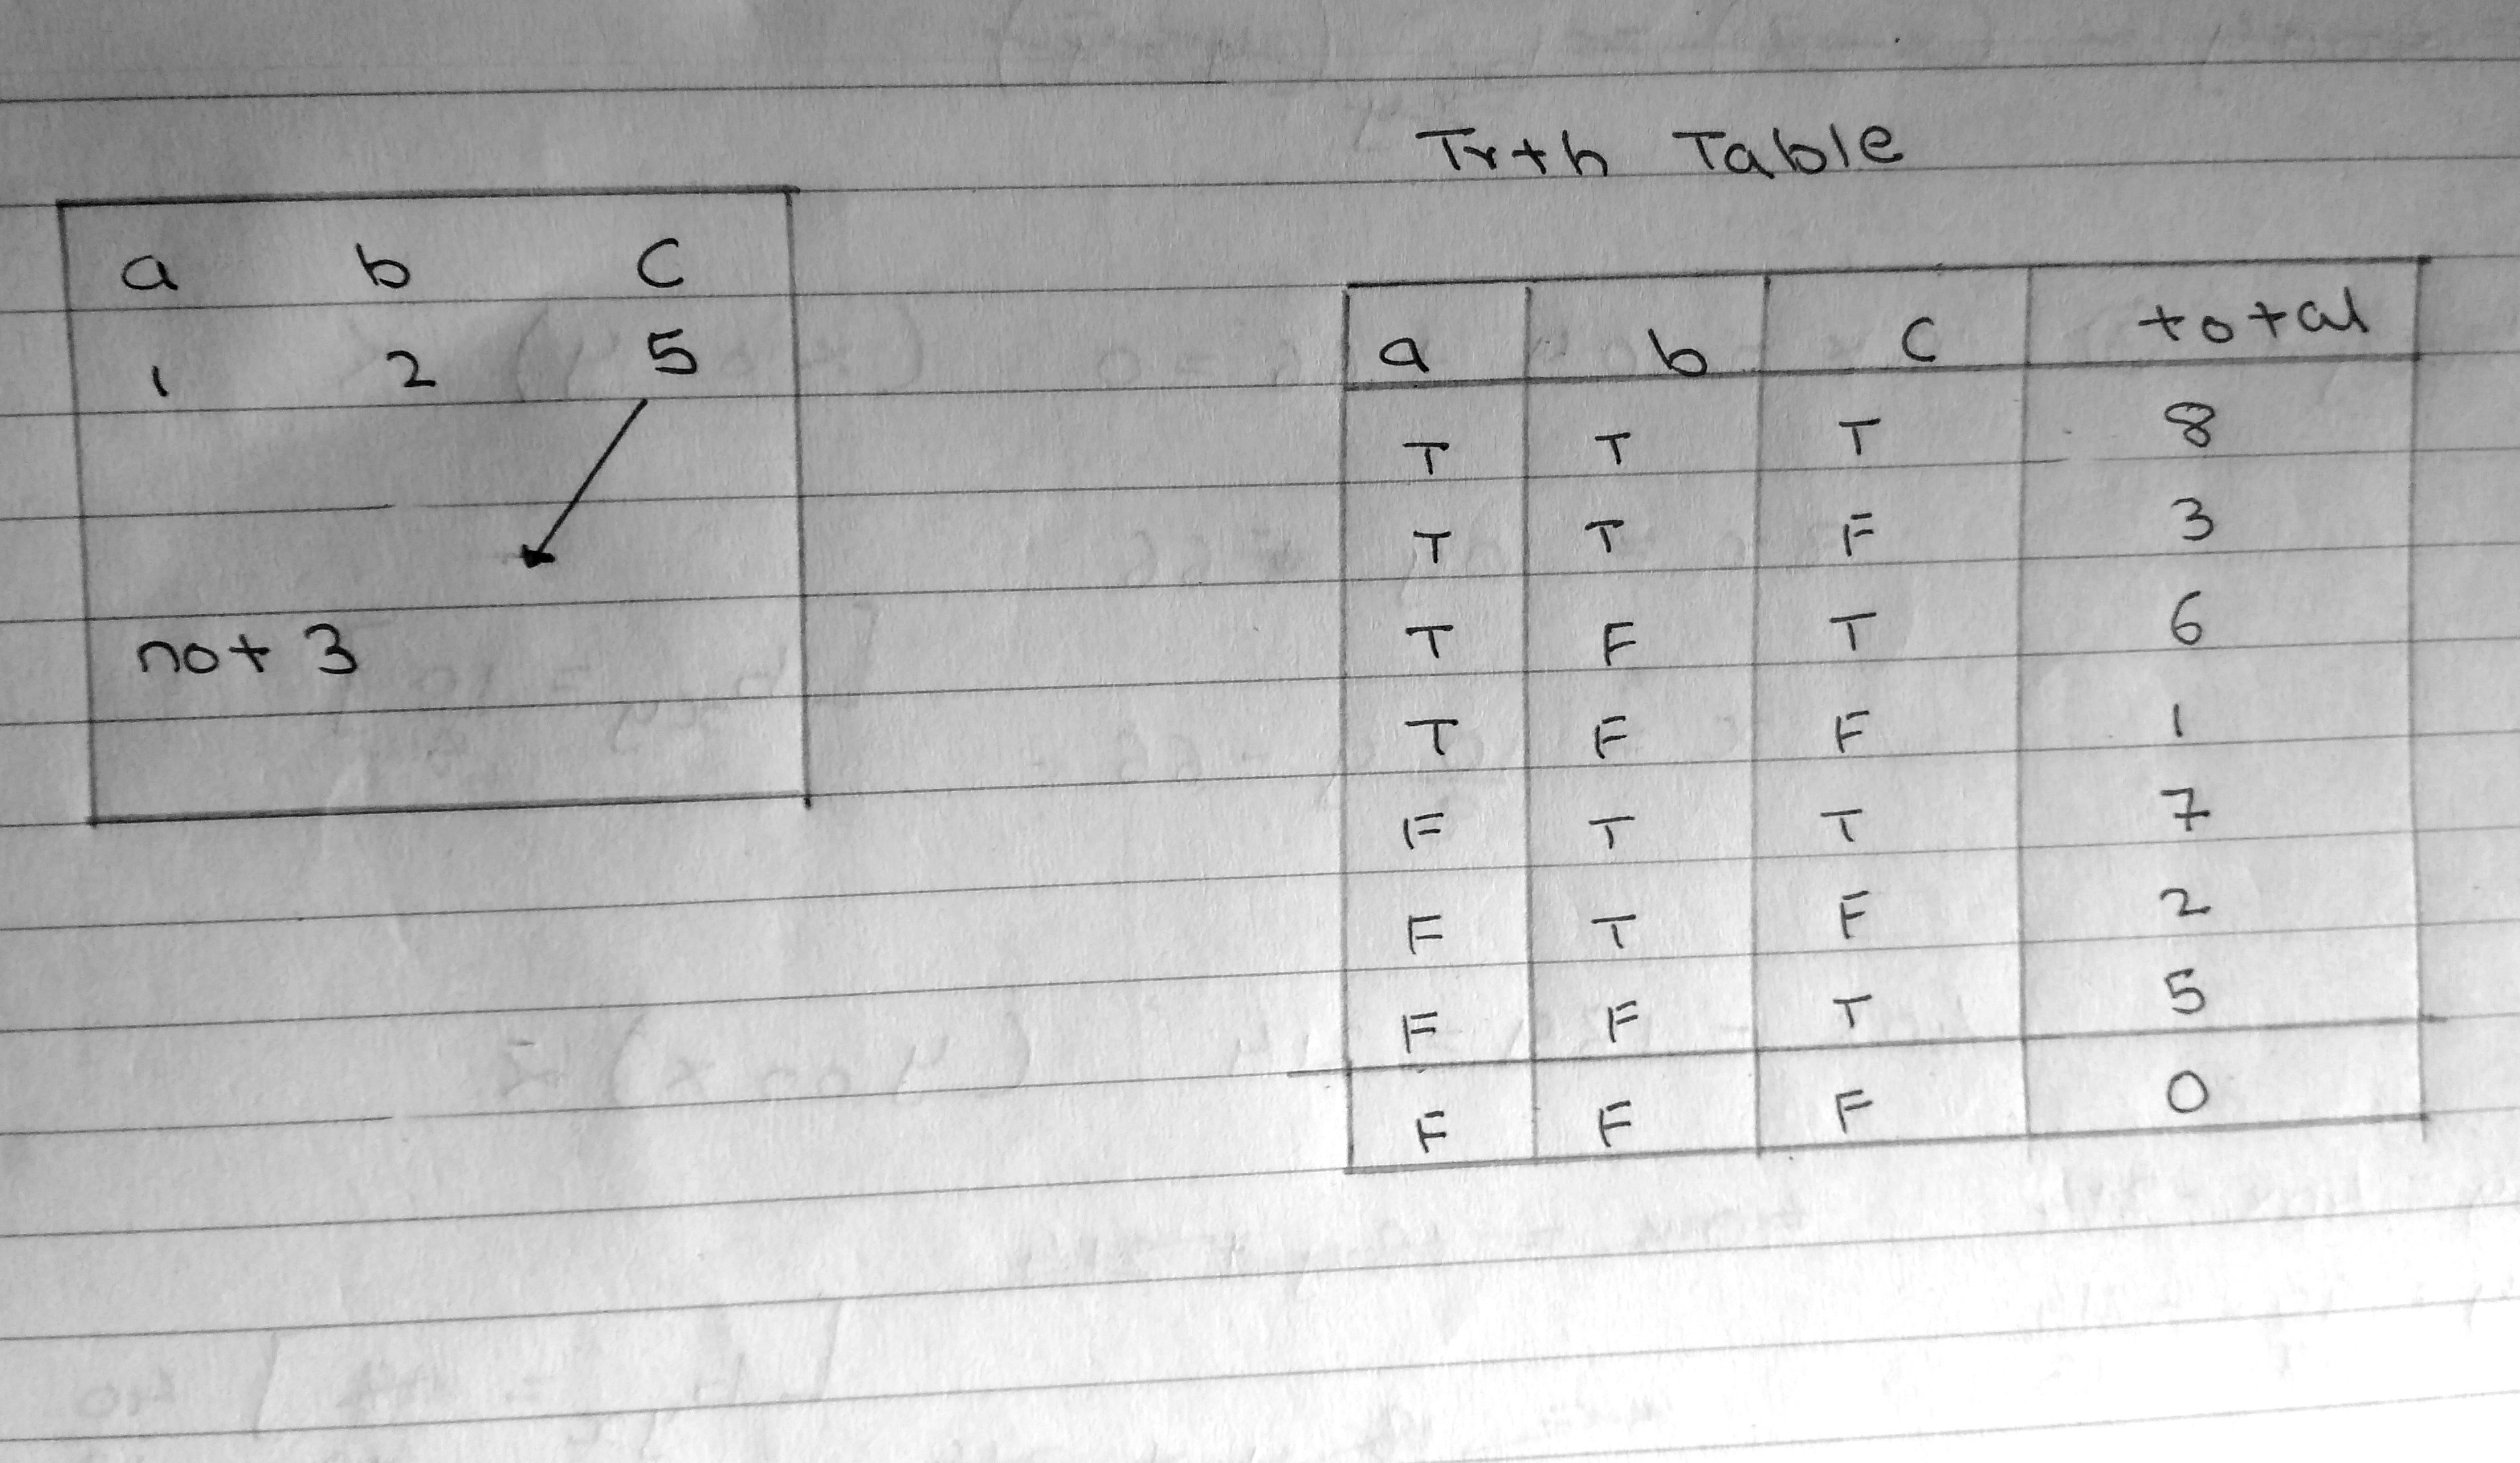 a b c
1 2 5
not 3
Trth Table
a b c total
T T T 8
T T F 3
T F T 6
T F F 1
F T T 7
F T F 2
F F T 5
F F F 0